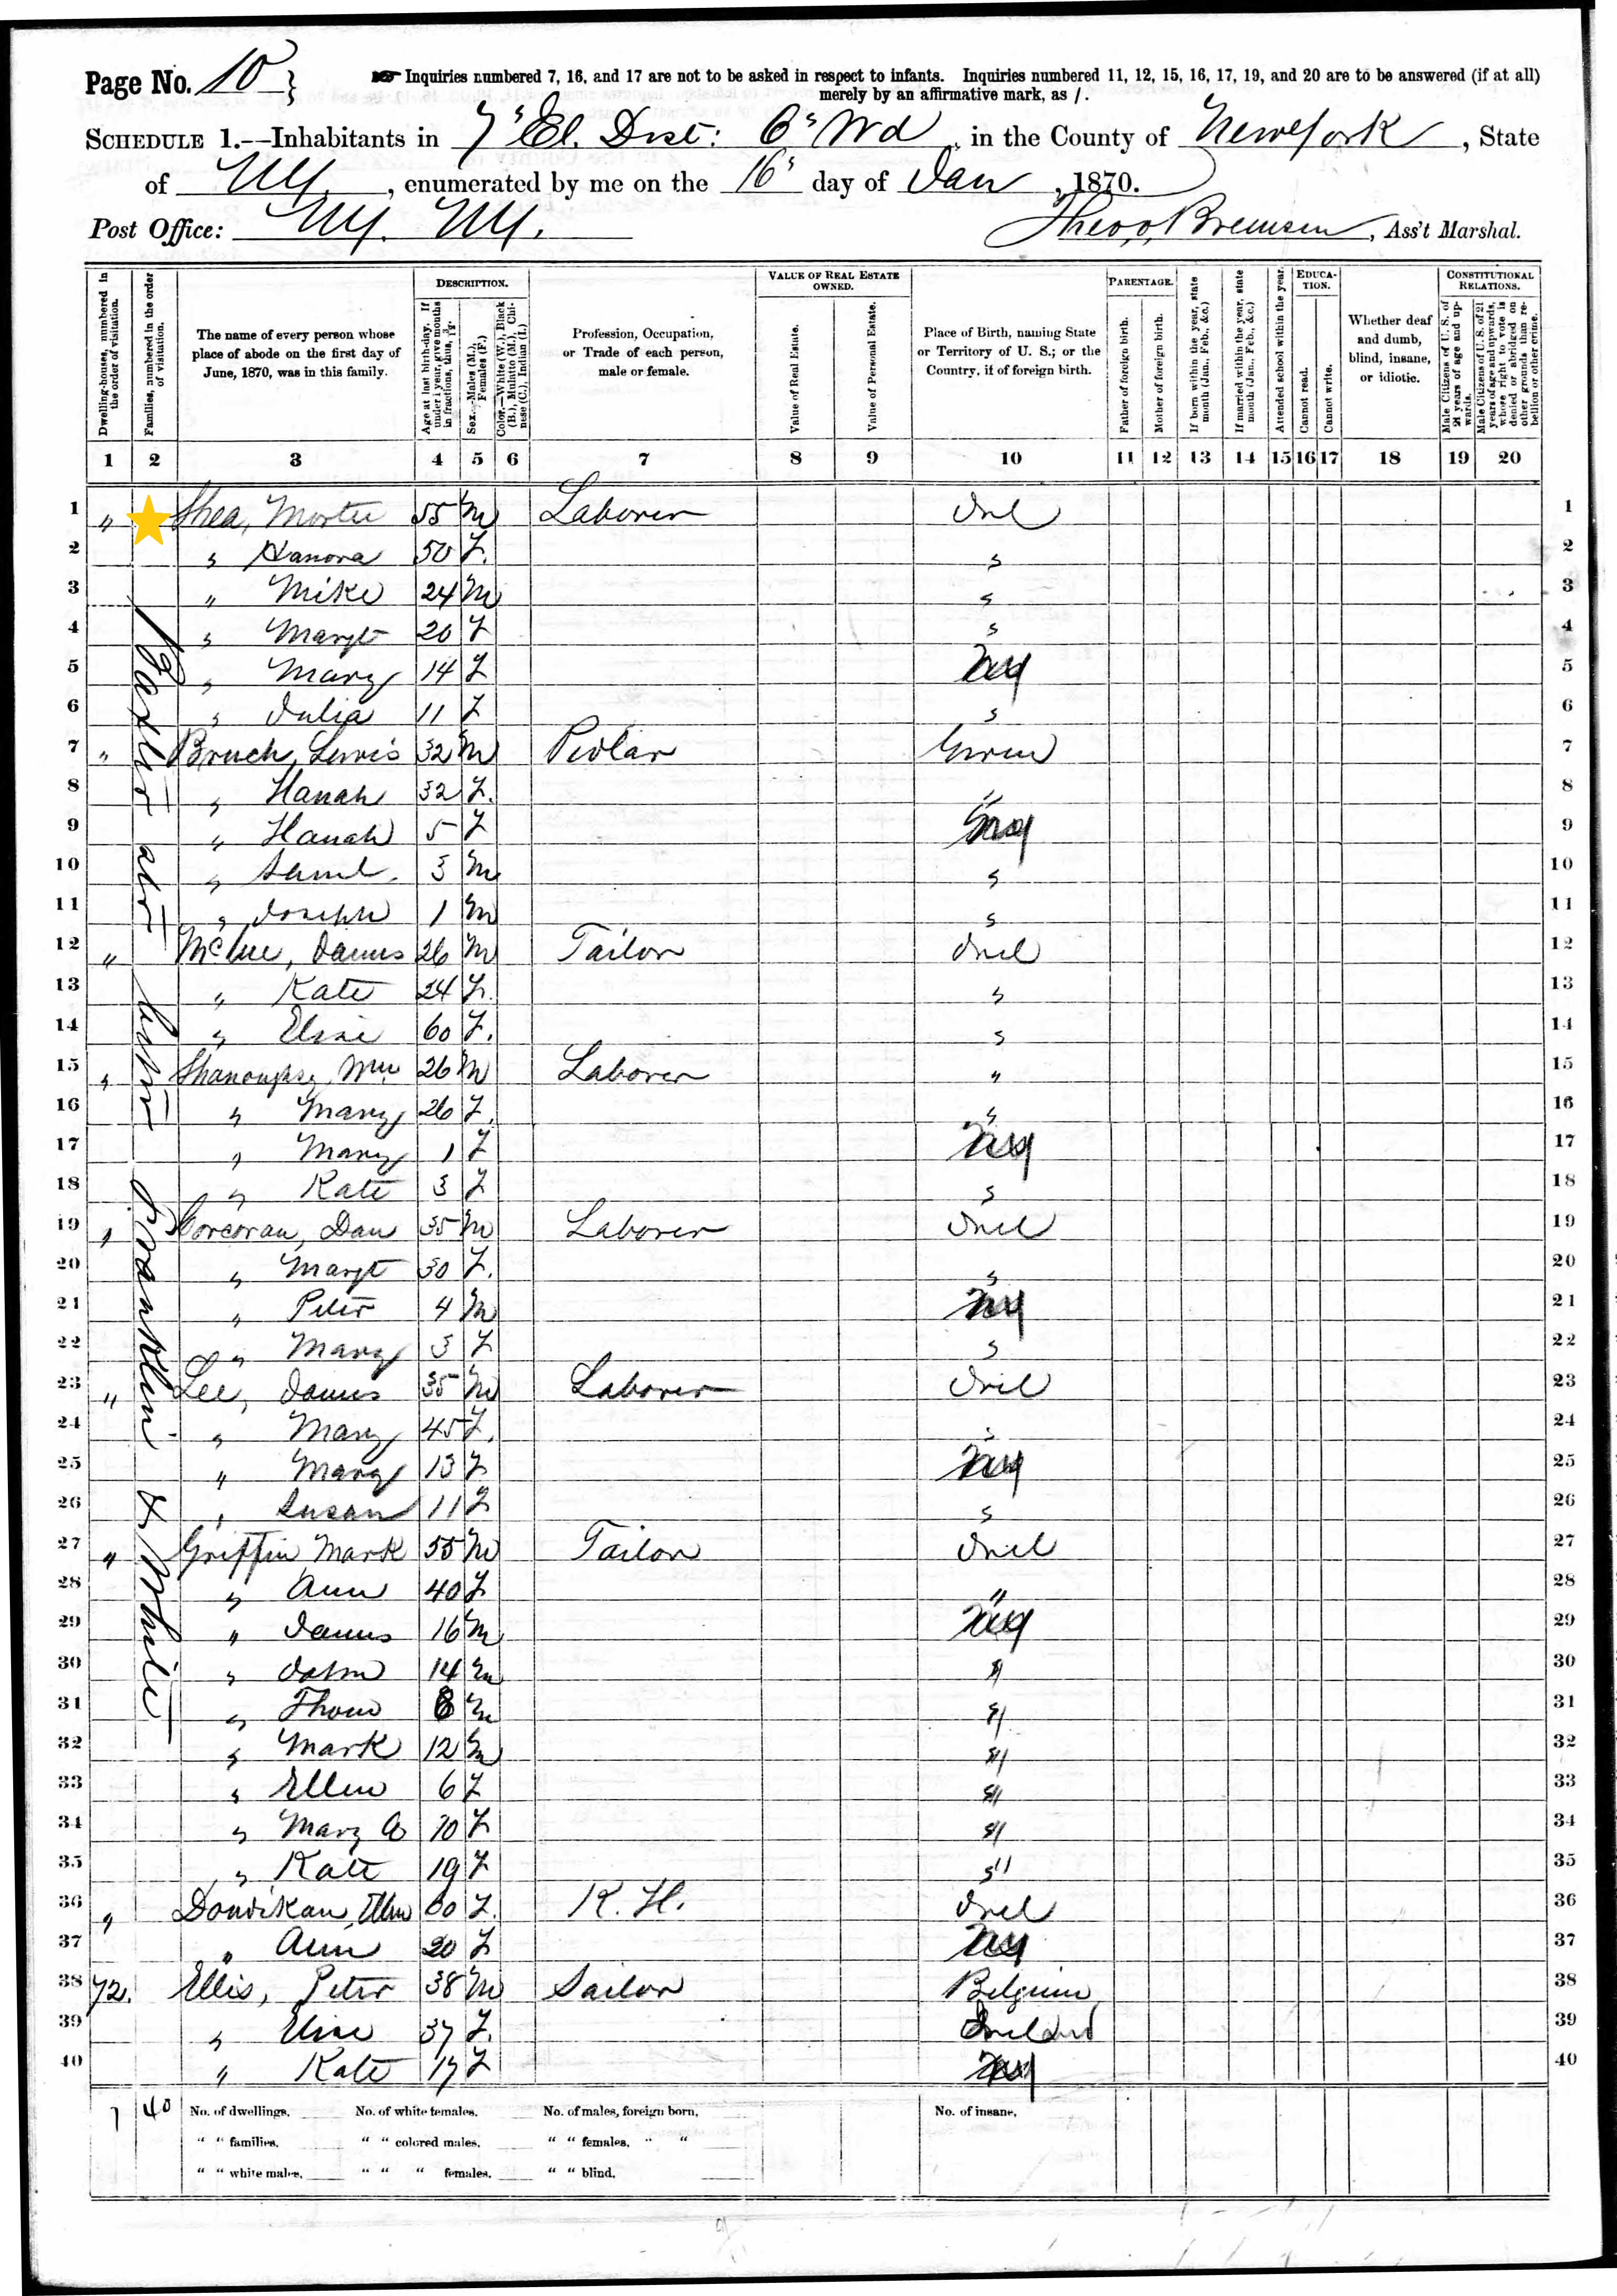 Page No. 10 }
☞ Inquiries numbered 7, 16, and 17 are not to be asked in respect to infants. Inquiries numbered 11, 12, 15, 16, 17, 19, and 20 are to be answered (if at all)
merely by an affirmative mark, as /.
SCHEDULE 1.—Inhabitants in 7s El. Dist: 6s Wd, in the County of New York, State
of NY, enumerated by me on the 16s day of Jan, 1870.
Post Office: NY. NY.
, Ass't Marshal.
Dwelling-houses, numbered in the order of visitation.
Families, numbered in the order of visitation.
The name of every person whose place of abode on the first day of June, 1870, was in this family.
DESCRIPTION.
Age at last birth-day. If under 1 year, give months in fractions, thus, 3/12.
Sex.—Males (M.), Females (F.)
Color.—White (W.), Black (B.), Mulatto (M.), Chinese (C.), Indian (I.)
Profession, Occupation, or Trade of each person, male or female.
VALUE OF REAL ESTATE OWNED.
Value of Real Estate.
Value of Personal Estate.
Place of Birth, naming State or Territory of U. S.; or the Country, if of foreign birth.
PARENTAGE.
Father of foreign birth.
Mother of foreign birth.
If born within the year, state month (Jan., Feb., &c.)
If married within the year, state month (Jan., Feb., &c.)
Attended school within the year.
EDUCATION.
Cannot read.
Cannot write.
Whether deaf and dumb, blind, insane, or idiotic.
CONSTITUTIONAL RELATIONS.
Male Citizens of U. S. of 21 years of age and upwards.
Male Citizens of U. S. of 21 years of age and upwards, whose right to vote is denied or abridged on other grounds than rebellion or other crime.
1 2 3 4 5 6 7 8 9 10 11 12 13 14 15 16 17 18 19 20
1 " Shea, Mortu 55 M Laborer Irel 1
2 " Hanora 50 F. " 2
3 " Mike 24 M " 3
4 " Margt 20 F " 4
5 " Mary 14 F NY 5
6 " Julia 11 F " 6
7 " Bruch, Lewis 32 M Pedlar Germ 7
8 " Hanah 32 F. " 8
9 " Hanah 5 F NY 9
10 " Saml. 3 M " 10
11 " Joseph 1 M " 11
12 " McCue, James 26 M Tailor Irel 12
13 " Kate 24 F. " 13
14 " Elise 60 F. " 14
15 " Wm 26 M Laborer " 15
16 " Mary 26 F. " 16
17 " Mary 1 F NY 17
18 " Kate 3 F " 18
19 " Corcoran, Dan 35 M Laborer Irel 19
20 " Margt 30 F. " 20
21 " Peter 4 M NY 21
22 " Mary 3 F " 22
23 " Lee, James 35 M Laborer Irel 23
24 " Mary 45 F. " 24
25 " Mary 13 F NY 25
26 " Susan 11 F " 26
27 " Griffin Mark 55 M Tailor Irel 27
28 " Ann 40 F " 28
29 " James 16 M NY 29
30 " John 14 M " 30
31 " Thom 8 M " 31
32 " Mark 12 M " 32
33 " Ellen 6 F " 33
34 " Mary A 10 F " 34
35 " Kate 19 F " 35
36 " Ellen 60 F. K. H. Irel 36
37 " Ann 20 F NY 37
38 72. Ellis, Peter 38 M Sailor Belgium 38
39 " Elise 37 F. Ireland 39
40 " Kate 17 F NY 40
Baxter abt Franklin & White
1 40
No. of dwellings, No. of white females, No. of males, foreign born, No. of insane,
" " families, " " colored males, " " females, " "
" " white males, " " " females, " " blind,